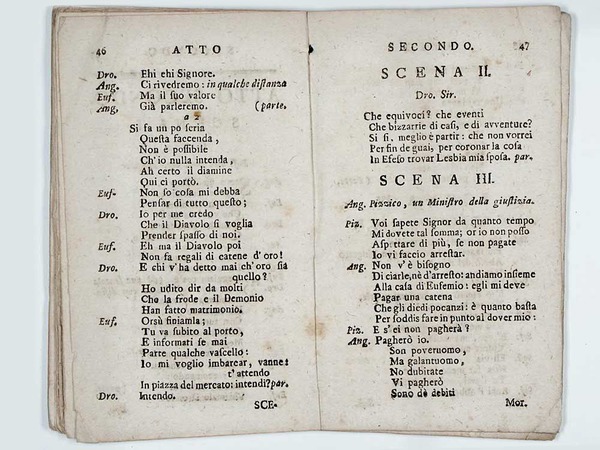 46 ATTO
Dro. Ehi ehi Signore.
Ang. Ci rivedremo: in qualche distanza
Euf. Ma il suo valore
Ang. Già parleremo. (parte.
a 2
Si fa un po seria
Questa faccenda,
Non è possibile
Ch'io nulla intenda,
Ah certo il diamine
Qui ci portò.
Euf. Non so cosa mi debba
Pensar di tutto questo;
Dro. Io per me credo
Che il Diavolo si voglia
Prender spasso di noi.
Euf. Eh ma il Diavolo poi
Non fa regali di catene d'oro!
Dro. E chi v'ha detto mai ch'oro sia
quello?
Ho udito dir da molti
Che la frode e il Demonio
Han fatto matrimonio.
Euf. Orsù finiamla;
Tu va subito al porto,
E informati se mai
Parte qualche vascello:
Io mi voglio imbarcar, vanne:
t'attendo
In piazza del mercato: intendi? par.
Dro. Intendo.
SCE-
SECONDO. 47
SCENA II.
Dro. Sir.
Che equivoci? che eventi
Che bizzarrie di casi, e di avventure?
Si si, meglio è partir: che non vorrei
Per fin de guai, per coronar la cosa
In Efeso trovar Lesbia mia sposa. par.
SCENA III.
Ang. Pizzico, un Ministro della giustizia.
Piz. Voi sapete Signor da quanto tempo
Mi dovete tal somma; or io non posso
Aspettare di più, se non pagate
Io vi faccio arrestar.
Ang. Non v'è bisogno
Di ciarle, nè d'arresto: andiamo insieme
Alla casa di Eufemio: egli mi deve
Pagar una catena
Che gli diedi pocanzi: è quanto basta
Per soddisfare in punto al dover mio:
Piz. E s'ei non pagherà?
Ang. Pagherò io.
Son poveruomo,
Ma galantuomo,
No dubitate
Vi pagherò
Sono de debiti
Mor.